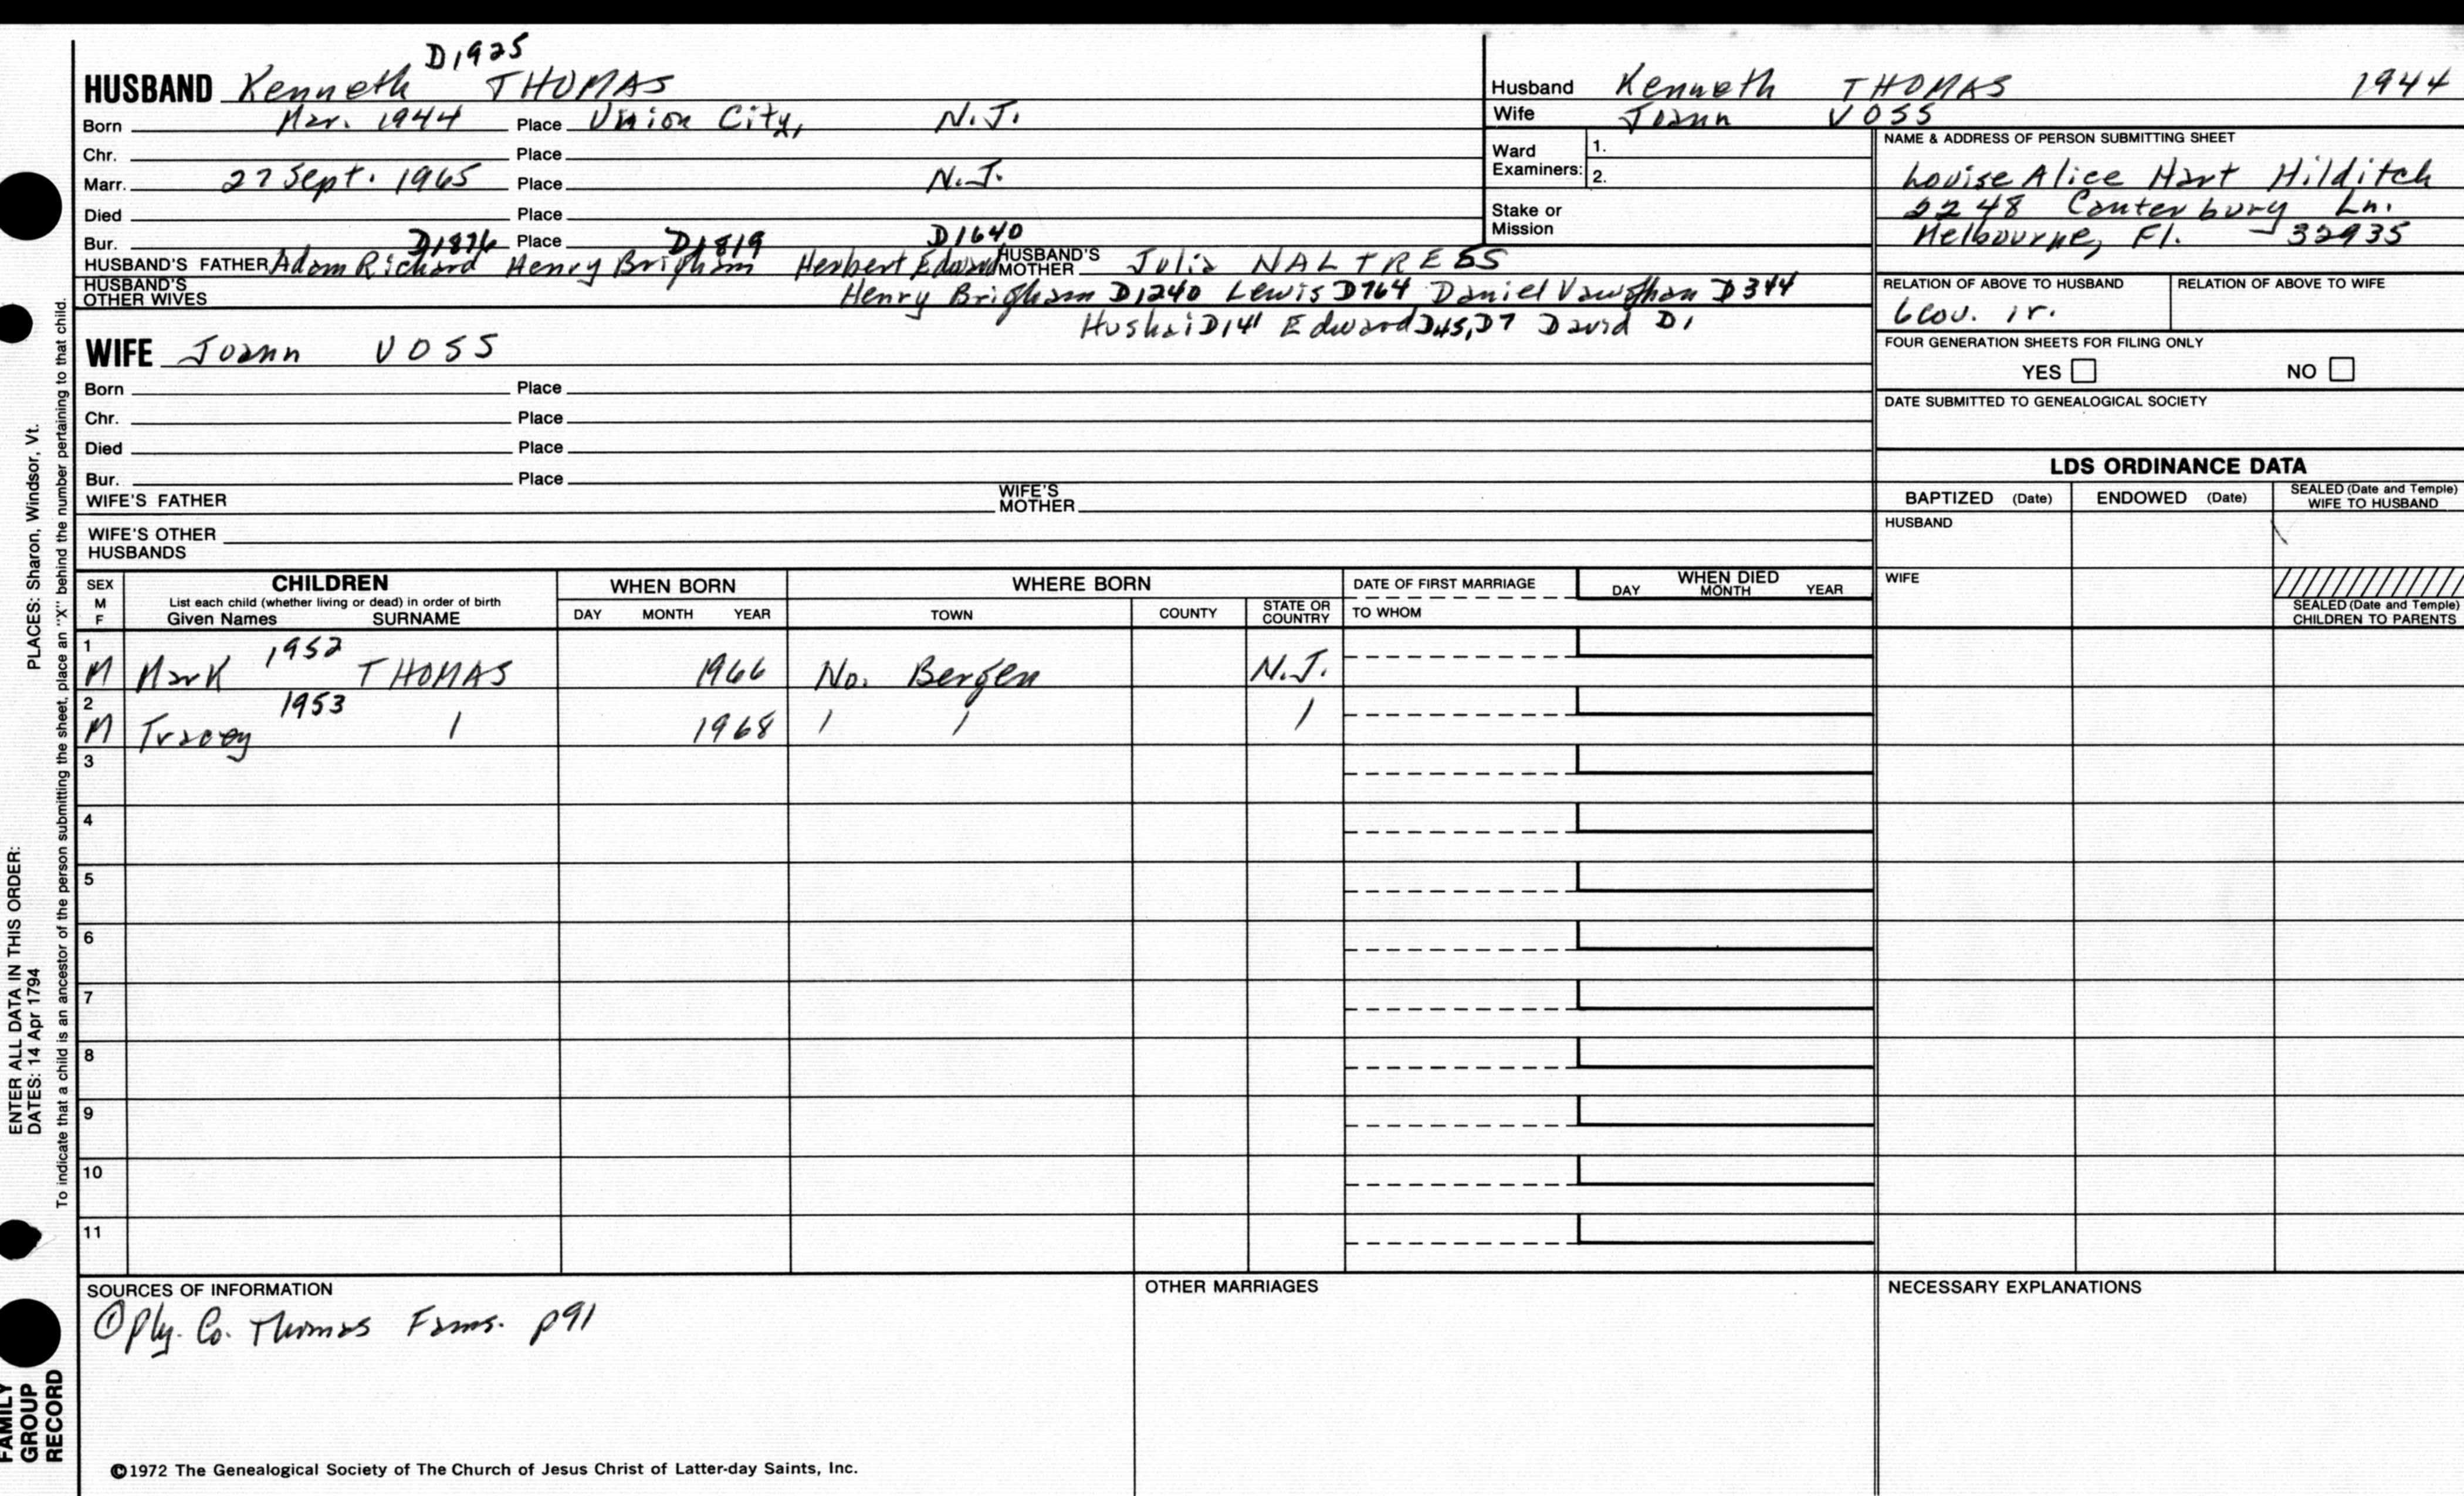 D1925
HUSBAND Kenneth THOMAS
Born Mar. 1944 Place Union City, N.J.
Chr. Place
Marr. 27 Sept. 1965 Place N.J.
Died Place
Bur. Place
D1876 D1819 D1640
HUSBAND'S FATHER Adam Richard Henry Brigham Herbert Edward HUSBAND'S MOTHER Julia NALTRESS
HUSBAND'S OTHER WIVES Henry Brigham D1240 Lewis D764 Daniel Vaughan D344
Hushai D141 Edward D45, D7 David D1
WIFE Joann VOSS
Born Place
Chr. Place
Died Place
Bur. Place
WIFE'S FATHER WIFE'S MOTHER
WIFE'S OTHER HUSBANDS
Husband Kenneth THOMAS 1944
Wife Joann VOSS
Ward Examiners: 1.
2.
Stake or Mission
NAME & ADDRESS OF PERSON SUBMITTING SHEET
Louise Alice Hart Hilditch
2248 Canterbury Ln.
Melbourne, Fl. 32935
RELATION OF ABOVE TO HUSBAND RELATION OF ABOVE TO WIFE
6cou. 1r.
FOUR GENERATION SHEETS FOR FILING ONLY
YES NO
DATE SUBMITTED TO GENEALOGICAL SOCIETY
LDS ORDINANCE DATA
BAPTIZED (Date) ENDOWED (Date) SEALED (Date and Temple) WIFE TO HUSBAND
HUSBAND
WIFE
SEALED (Date and Temple) CHILDREN TO PARENTS
SEX M F CHILDREN WHEN BORN WHERE BORN DATE OF FIRST MARRIAGE WHEN DIED
List each child (whether living or dead) in order of birth
Given Names SURNAME DAY MONTH YEAR TOWN COUNTY STATE OR COUNTRY TO WHOM DAY MONTH YEAR
1 1952
M Mark THOMAS 1966 No. Bergen N.J.
2 1953
M Tracey / 1968 / / /
3
4
5
6
7
8
9
10
11
SOURCES OF INFORMATION OTHER MARRIAGES NECESSARY EXPLANATIONS
① Ply. Co. Thomas Fams. p91
©1972 The Genealogical Society of The Church of Jesus Christ of Latter-day Saints, Inc.
ENTER ALL DATA IN THIS ORDER:
DATES: 14 Apr 1794 PLACES: Sharon, Windsor, Vt.
To indicate that a child is an ancestor of the person submitting the sheet, place an "X" behind the number pertaining to that child.
FAMILY
GROUP
RECORD